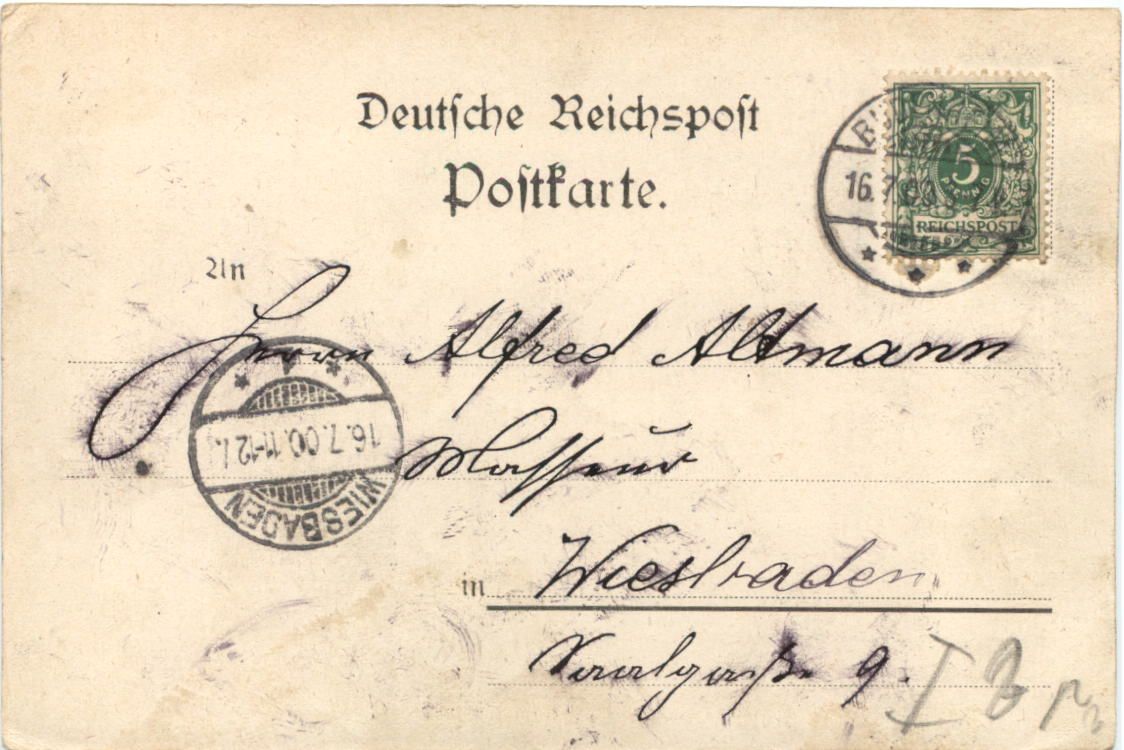 Deutsche Reichspost
Postkarte.
5
PFENNIG
REICHSPOST
16.7.00
An
Herrn Alfred Altmann
Masseur
16.7.00.11-12
WIESBADEN
in Wiesbaden
Saalgasse 9.
I